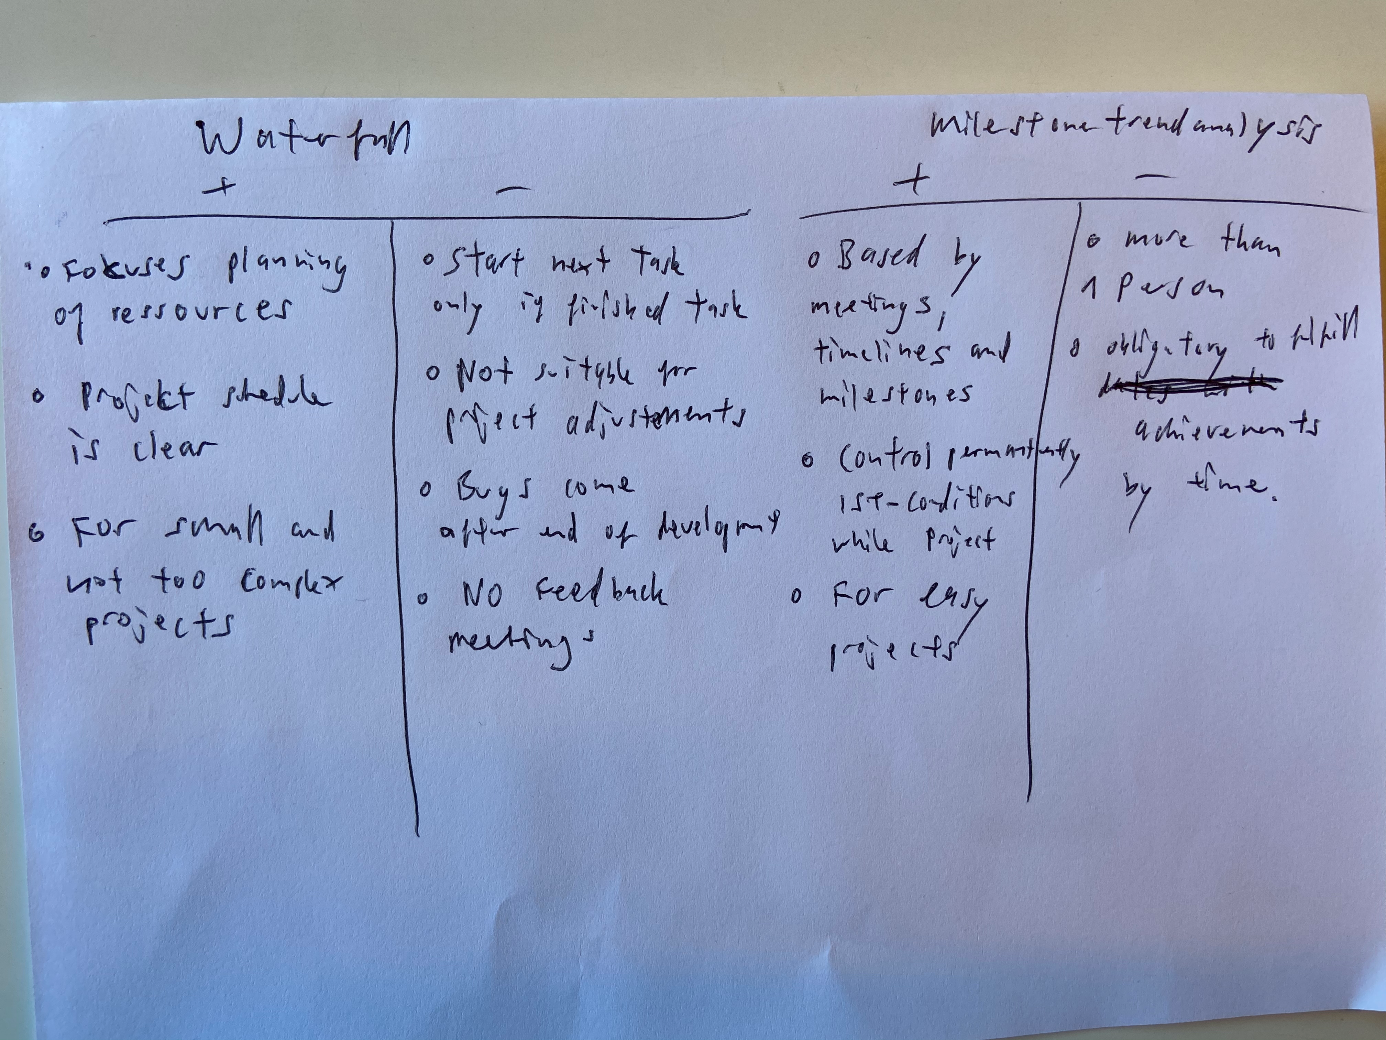 Waterfall
+ −
• Fokuses planning
of ressources
• Projekt shedule
is clear
• For small and
not too complex
projects
• Start next Task
only if finished task
• Not suitable for
project adjustements
• Bugs come
after end of development
• No Feedback
meetings
Milestonetrendanalysis
+ −
• Based by
meetings,
timelines and
milestones
• Control permantently
ist-conditions
while Project
• For easy
projects
• more than
1 Person
• obligatory to fulfill
achievements
by time.